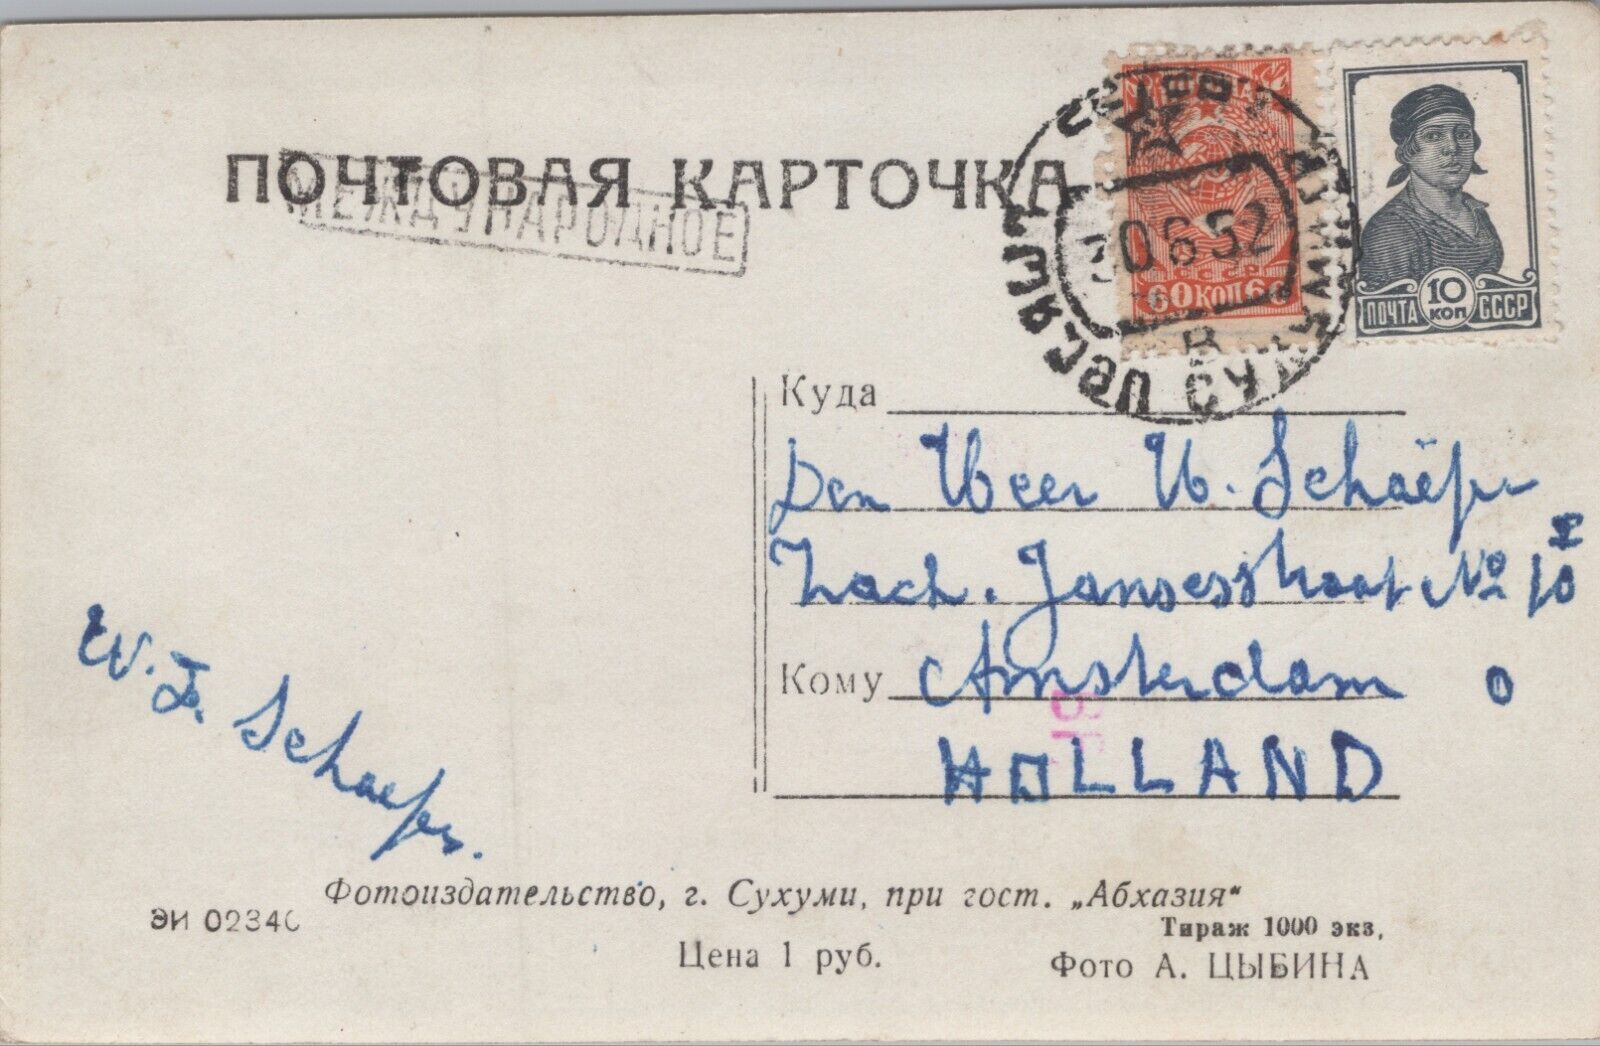 ПОЧТОВАЯ КАРТОЧКА
МЕЖДУНАРОДНОЕ
60 КОП 60
30 6 52
ПОЧТА 10 КОП СССР
Куда
Den Heer W. Schaëfer
Zach. Jansesstraat № 10 I
Кому Amsterdam O
HOLLAND
W. F. Schaefer.
Фотоиздательство, г. Сухуми, при гост. „Абхазия“
ЭИ 02340
Тираж 1000 экз,
Цена 1 руб.
Фото А. ЦЫБИНА